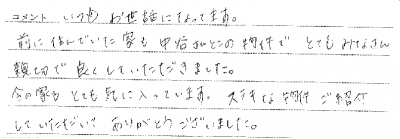 コメント いつも お世話になってます。
前に住んでいた家も 中谷さんとこの物件で とてもみなさん
親切で良くしていただきました。
今の家も とても気に入っています。ステキな物件 ご紹介
していただいて ありがとうございました。